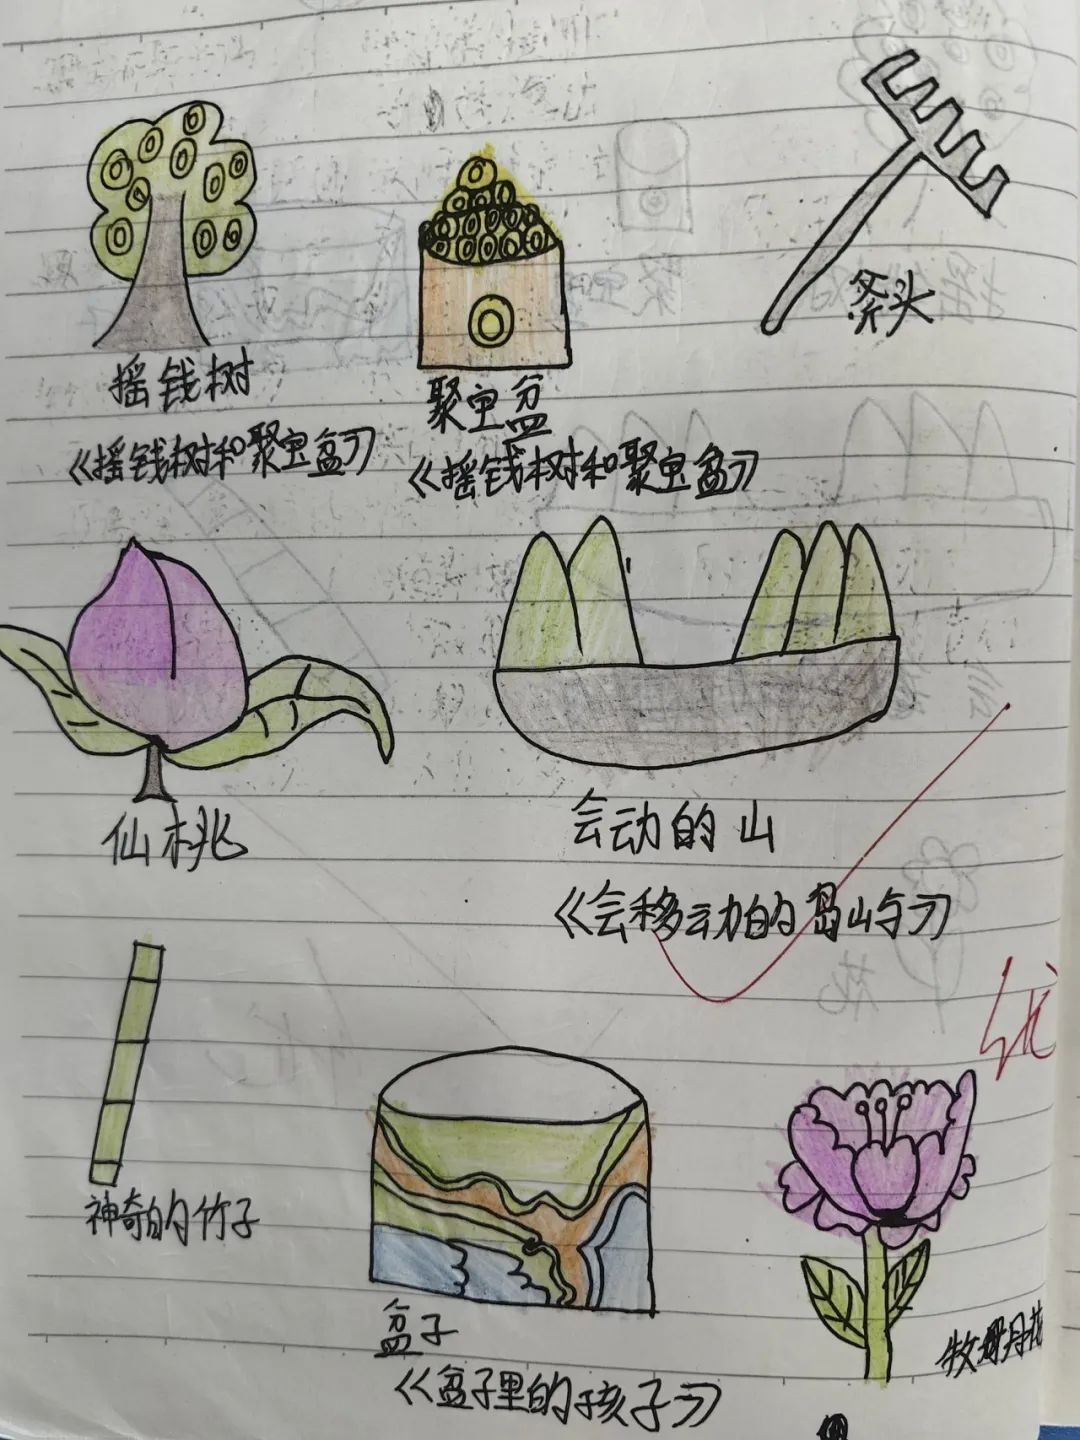 摇钱树
《摇钱树和聚宝盆》
聚宝盆
《摇钱树和聚宝盆》
仙桃
会动的山
《会移动的岛山屿》
优
神奇的竹子
盆子
《盆子里的孩子》